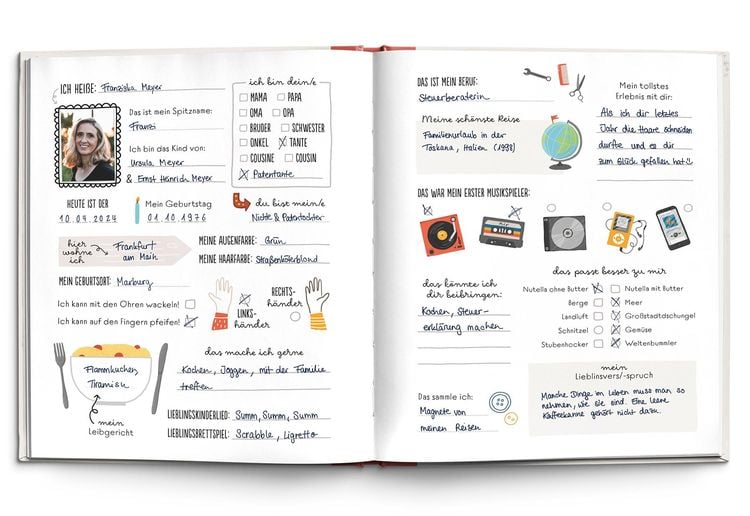 ICH HEIßE: Franziska Meyer
Das ist mein Spitzname:
Franzi
Ich bin das Kind von:
Ursula Meyer
& Ernst Heinrich Meyer
ich bin dein/e
MAMA PAPA
OMA OPA
BRUDER SCHWESTER
ONKEL TANTE
COUSINE COUSIN
Patentante
HEUTE IST DER
10.04.2024
Mein Geburtstag
01.10.1976
du bist mein/e
Nichte & Patentochter
hier wohne ich
Frankfurt
am Main
MEINE AUGENFARBE: Grün
MEINE HAARFARBE: Straßenköterblond
MEIN GEBURTSORT: Marburg
Ich kann mit den Ohren wackeln!
Ich kann auf den Fingern pfeifen!
LINKS-
händer
RECHTS-
händer
Flammkuchen,
Tiramisu
mein
Leibgericht
das mache ich gerne
Kochen, Joggen, mit der Familie
treffen
LIEBLINGSKINDERLIED: Summ, Summ, Summ
LIEBLINGSBRETTSPIEL: Scrabble, Ligretto
DAS IST MEIN BERUF:
Steuerberaterin
Meine schönste Reise
Familienurlaub in der
Toskana, Italien (1998)
Mein tollstes
Erlebnis mit dir:
Als ich dir letztes
Jahr die Haare schneiden
durfte und es dir
zum Glück gefallen hat!!
DAS WAR MEIN ERSTER MUSIKSPIELER:
das könnte ich
dir beibringen:
Kochen, Steuer-
erklärung machen
das passt besser zu mir
Nutella ohne Butter Nutella mit Butter
Berge Meer
Landluft Großstadtdschungel
Schnitzel Gemüse
Stubenhocker Weltenbummler
Das sammle ich:
Magnete von
meinen Reisen
mein
Lieblinsvers/-spruch
Manche Dinge im Leben muss man so
nehmen, wie sie sind. Eine leere
Kaffeekanne gehört nicht dazu.